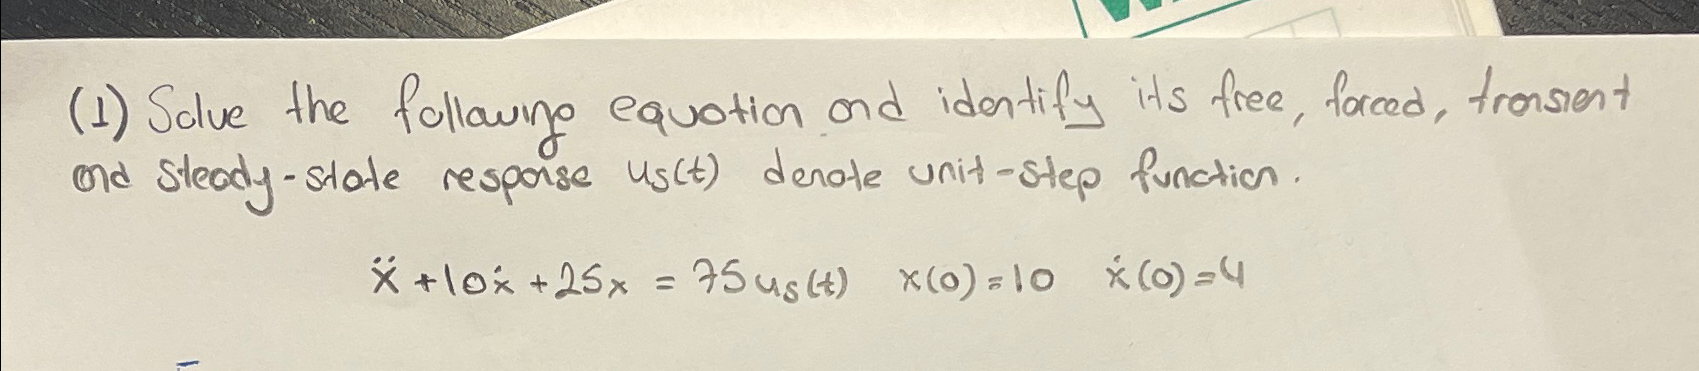 (1) Solve the following equation and identify its free, forced, transient
and steady-state response us(t) denote unit-step function.
ẍ + 10ẋ + 25x = 75us(t) x(0)=10 ẋ(0)=4